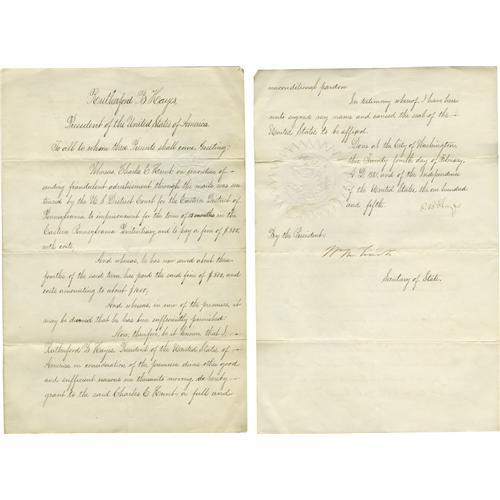 Rutherford B Hayes
President of the United States of America
To all to whom these Presents shall come, Greeting:
Whereas, Charles E. Hunt on conviction of
sending fraudulent advertisement through the mails was sen
tenced by the U.S. District Court for the Eastern District of
Pennsylvania to imprisonment for the term of months in the
Eastern Pennsylvania Penitentiary, and to pay a fine of $500,
with costs;
And whereas, he has now served about three
fourths of the said term, has paid the said fine of $500, and
costs amounting to about
And whereas, in view of the premises, it
may be deemed that he has been sufficiently punished:
Now, therefore, be it known that I,
Rutherford B. Hayes, President of the United States of
America in consideration of the premises, divers other good
and sufficient reasons me thereunto moving, do hereby
grant to the said Charles E. Hunt, a full and
unconditional pardon.
In testimony whereof, I have here
unto signed my name and caused the seal of the
United States to be affixed.
Done at the City of Washington,
this Twenty fourth day of February,
A.D. 1881, and of the Independence
of the United States, the one hundred
and fifth.
R B Hayes
By the President:
Secretary of State.